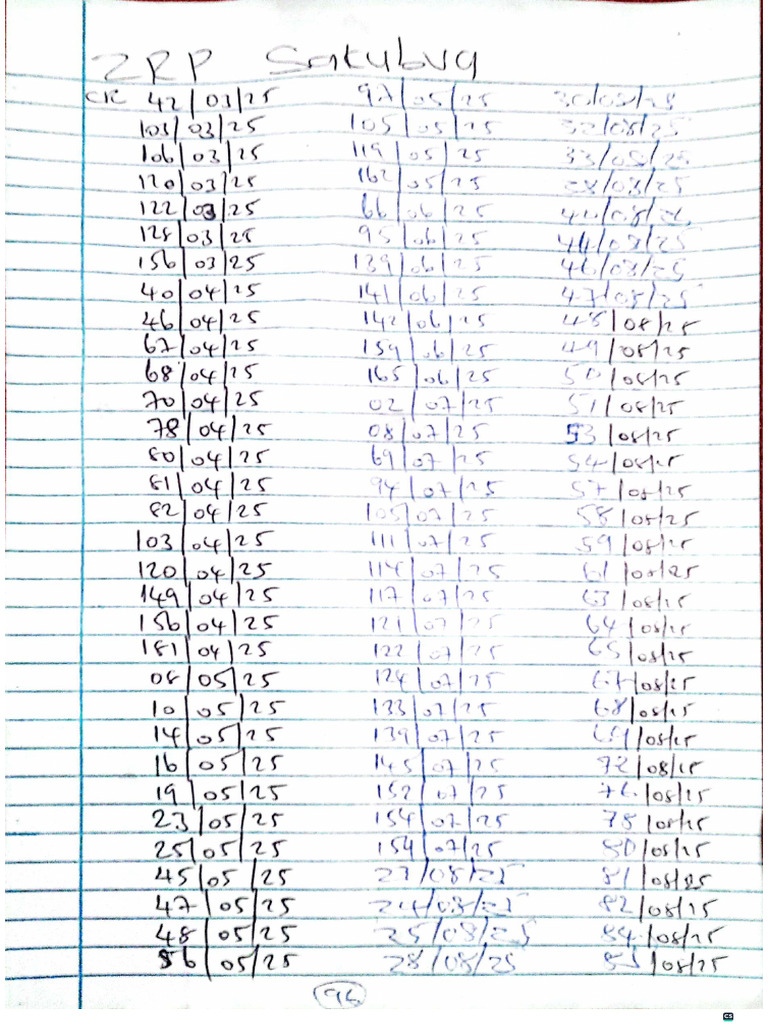 ZRP Sakubva
CR 42/03/25 97/05/25 30/08/25
103/03/25 105/05/25 32/08/25
106/03/25 119/05/25 33/08/25
120/03/25 162/05/25 38/08/25
122/03/25 66/06/25 40/08/25
128/03/25 95/06/25 44/08/25
156/03/25 139/06/25 46/08/25
40/04/25 141/06/25 47/08/25
46/04/25 142/06/25 48/08/25
67/04/25 159/06/25 49/08/25
68/04/25 165/06/25 50/08/25
70/04/25 02/07/25 51/08/25
78/04/25 08/07/25 53/08/25
80/04/25 69/07/25 54/08/25
81/04/25 94/07/25 57/08/25
82/04/25 105/07/25 58/08/25
103/04/25 111/07/25 59/08/25
120/04/25 114/07/25 61/08/25
149/04/25 117/07/25 63/08/25
156/04/25 121/07/25 64/08/25
181/04/25 122/07/25 65/08/25
08/05/25 124/07/25 67/08/25
10/05/25 133/07/25 68/08/25
14/05/25 139/07/25 69/08/25
16/05/25 145/07/25 72/08/25
19/05/25 152/07/25 76/08/25
23/05/25 154/07/25 78/08/25
25/05/25 159/07/25 80/08/25
45/05/25 23/08/25 81/08/25
47/05/25 24/08/25 82/08/25
48/05/25 25/08/25 84/08/25
56/05/25 28/08/25 85/08/25
96
CS